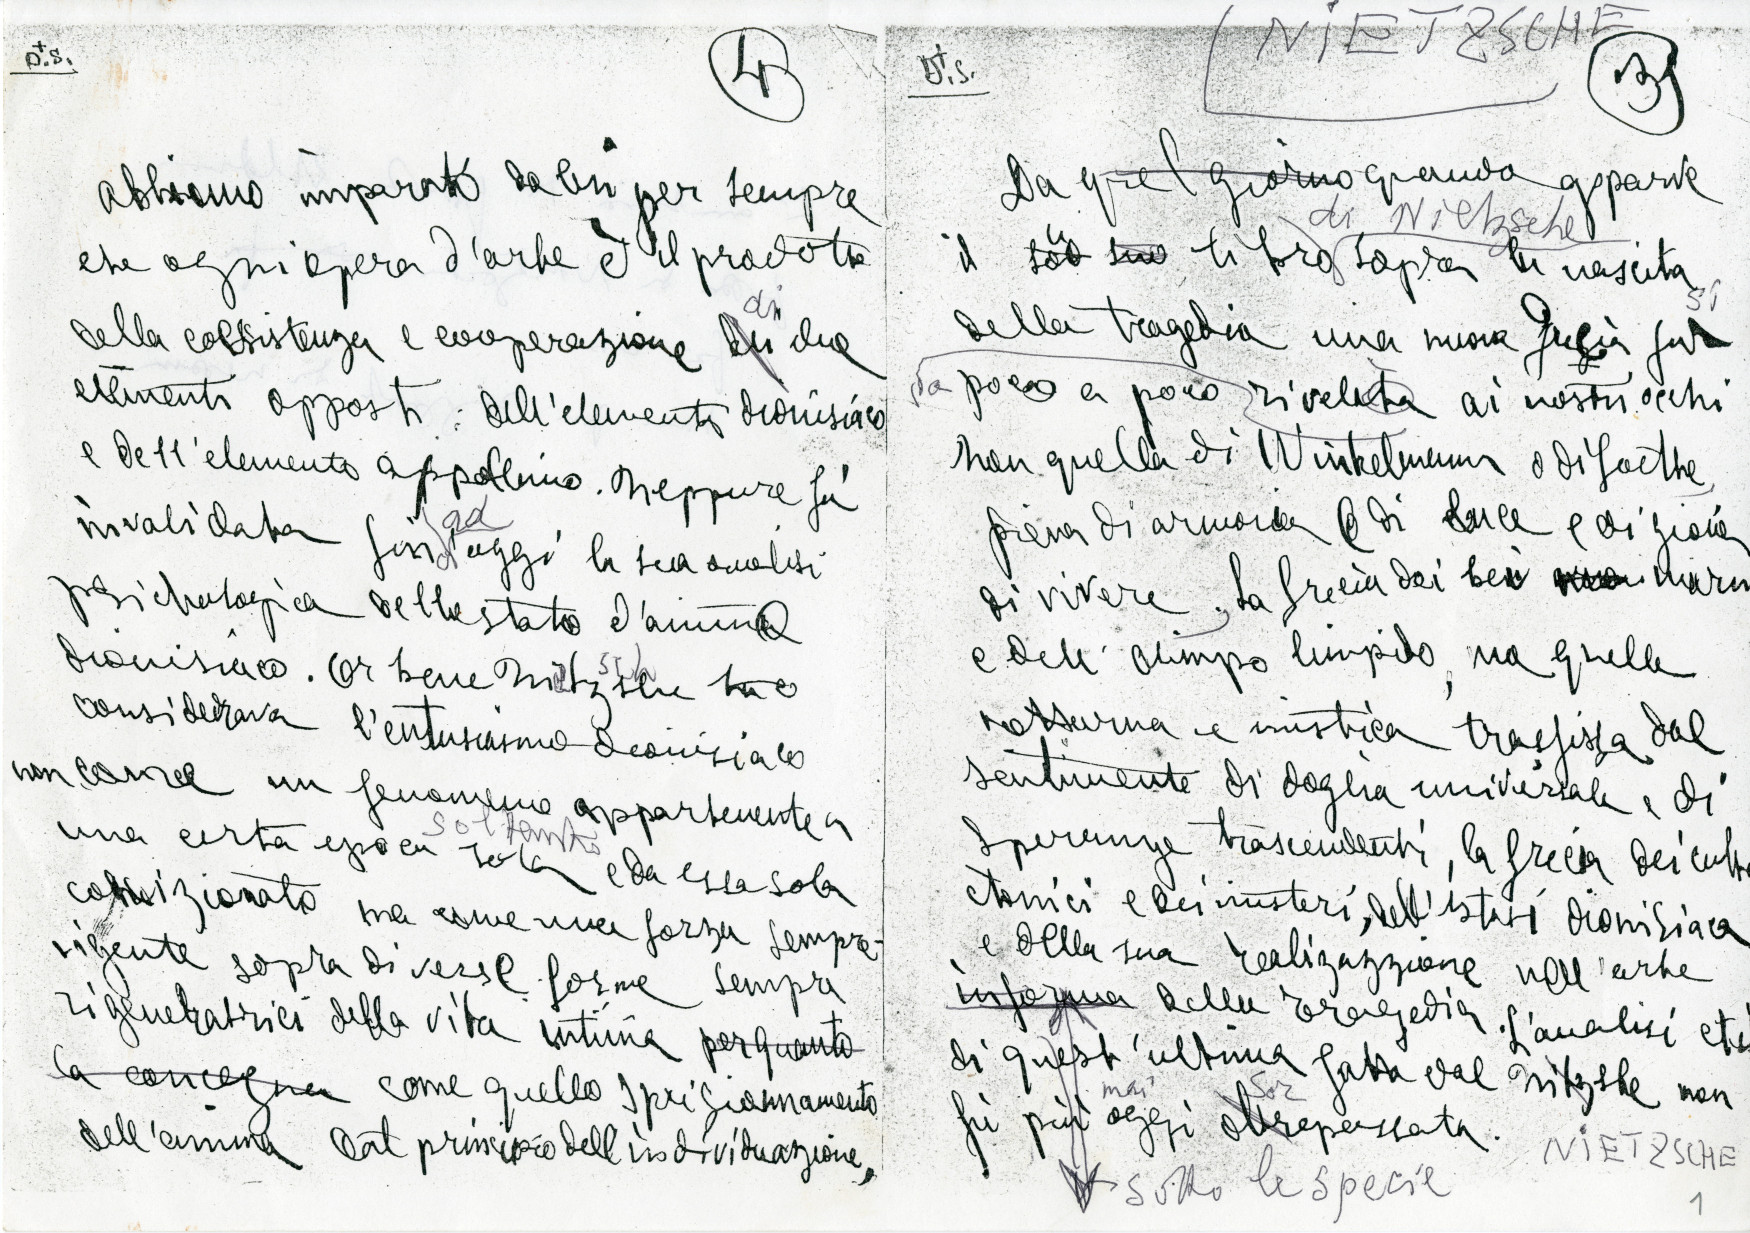 D.S.
4
abbiamo imparato da lui per sempre
che ogni opera d'arte è il prodotto
di
della coesistenza e cooperazione di due
elementi opposti: dell'elemento dionisiaco
e dell'elemento appollineo. Neppure fu
ad
invalidata fin d'oggi la sua analisi
psichologica dello stato d'animo
dionisiaco. Or bene Nitzsche
considerava l'entusiasmo dionisiaco
non come un fenomeno appartenente a
soltanto
una certa epoca sola e da essa sola
condizionato ma come una forza sempre
vigente sopra diverse forme sempre
rigeneratrici della vita intima per quanto
la concegna come quello sprigionamento
dell'anima dal principio dell'individuazione,
NIETZSCHE
D.S.
3
Da quel giorno quando apparve
di Nietzsche
il suo suo libro sopra la nascita
si
della tragedia una nuova Grecia fu
da poco a poco rivelata ai nostri occhi
non quella di Winkelmann o di Goethe
piena di armonia e di luce e di gioia
di vivere. La Grecia dei bei marmi
e dell' olimpo limpido, ma quella
notturna e mistica trafissa dal
sentimento di doglia universale e di
speranze trascendenti, la Grecia dei culti
ctonici e dei misteri, dell'estasi dionisiaca
e della sua realizzazione nell'arte
in forma della tragedia. L'analisi
di quest'ultima fatta dal Nitzshe non
mai
fu più oggi oltrepassata.
sotto le specie
NIETZSCHE
1